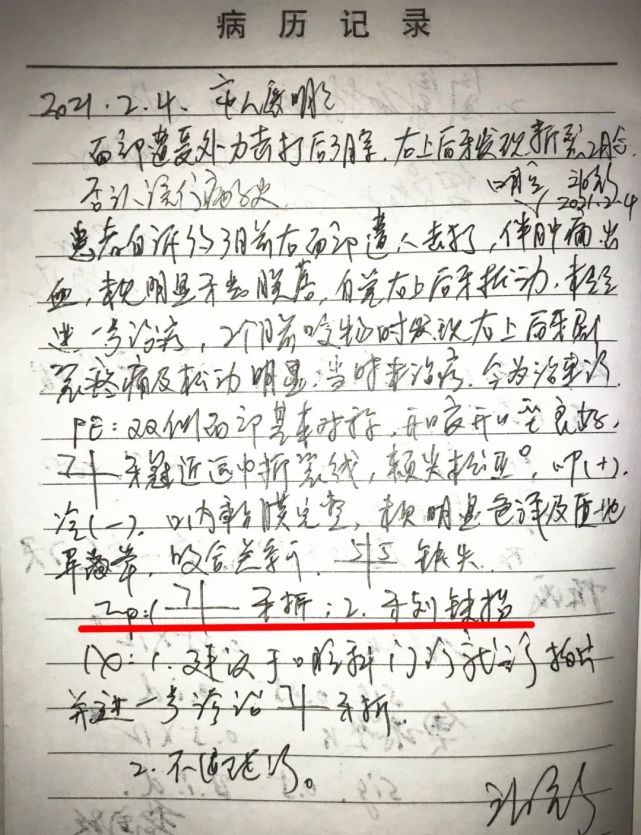 病历记录
2021.2.4. 市人医
面部遭受外力击打后3月余,右上后牙发现折裂2月余.
否认 病史 口腔
2021-2-4
患者自诉约3月前右面部遭人击打,伴肿痛出
血,未见明显牙齿脱落,自觉右上后牙松动.未经
进一步诊疗,2个月前咬物时发现右上后牙剧
烈疼痛及松动明显.当时未治疗.今为治来诊.
PE:双侧面部基本对称,开口度开口型良好,
7 牙冠近远中折裂线,颊尖松Ⅲ°,叩(+).
冷(-).口内黏膜完整,未见明显色泽及质地
异常,咬合关系可. 5 5 缺失
Imp:1 7 牙折;2.牙列缺损
Rx:1.建议于口腔科门诊就诊拍片
并进一步诊治 7 牙折.
2.不适随诊。